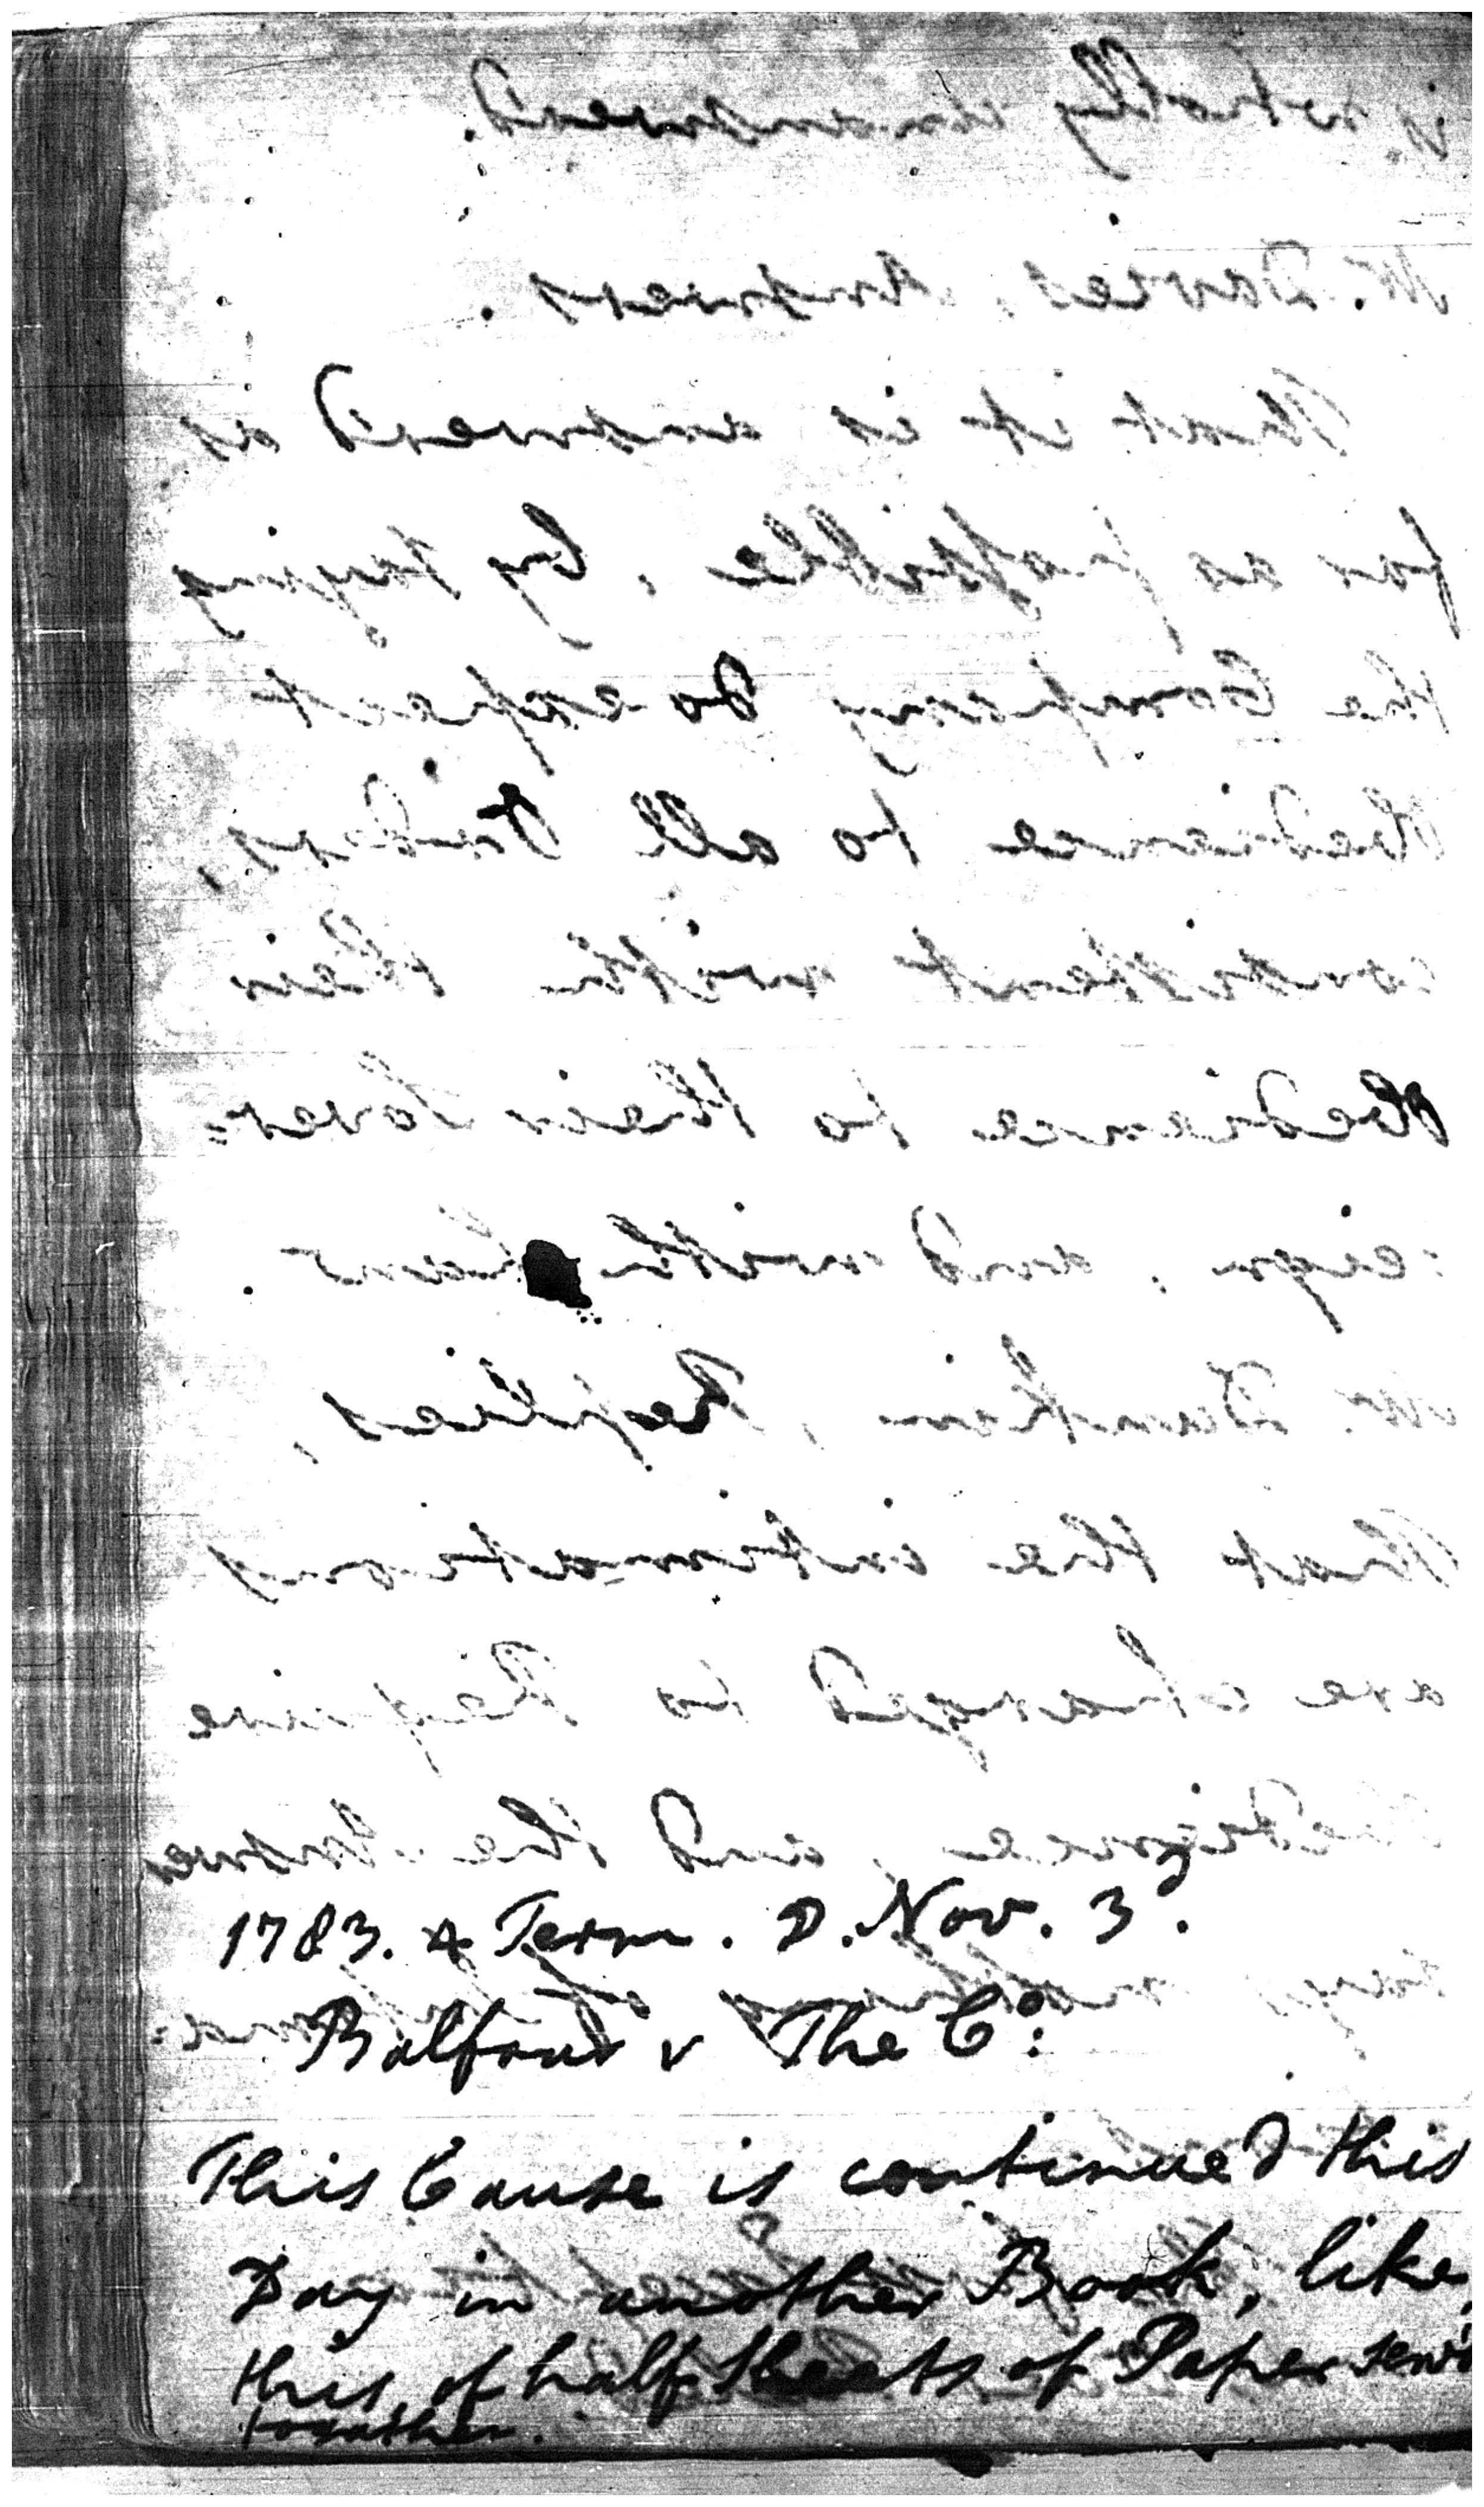 is wholly unanswered.
Mr. Davies, Answers.
That it is answered as
far as possible, by saying
the Company do expect
Obedience to all Orders,
consistent with their
Obedience to their Sover=
=eign, and with Laws.
Mr. Dunkin, Replies,
that the intimations
are charged to Require
and the Answer
1783. 4 Term. D. Nov. 3.
Balfour v The Co:
This Cause is continued this
Day in another Book, like
this, of half Sheets of Paper sew'd
together.